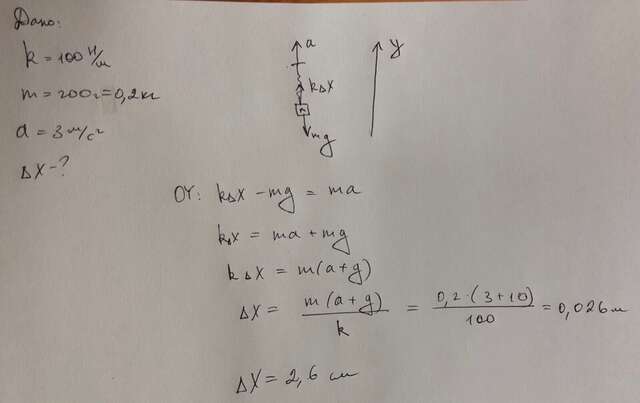 Дано:
k = 100 Н/м
m = 200г = 0,2 кг
a = 3 м/с²
Δx - ?
a
y
kΔx
mg
OY: kΔx - mg = ma
kΔx = ma + mg
kΔx = m(a+g)
Δx = m(a+g)/k = 0,2·(3+10)/100 = 0,026 м
Δx = 2,6 см